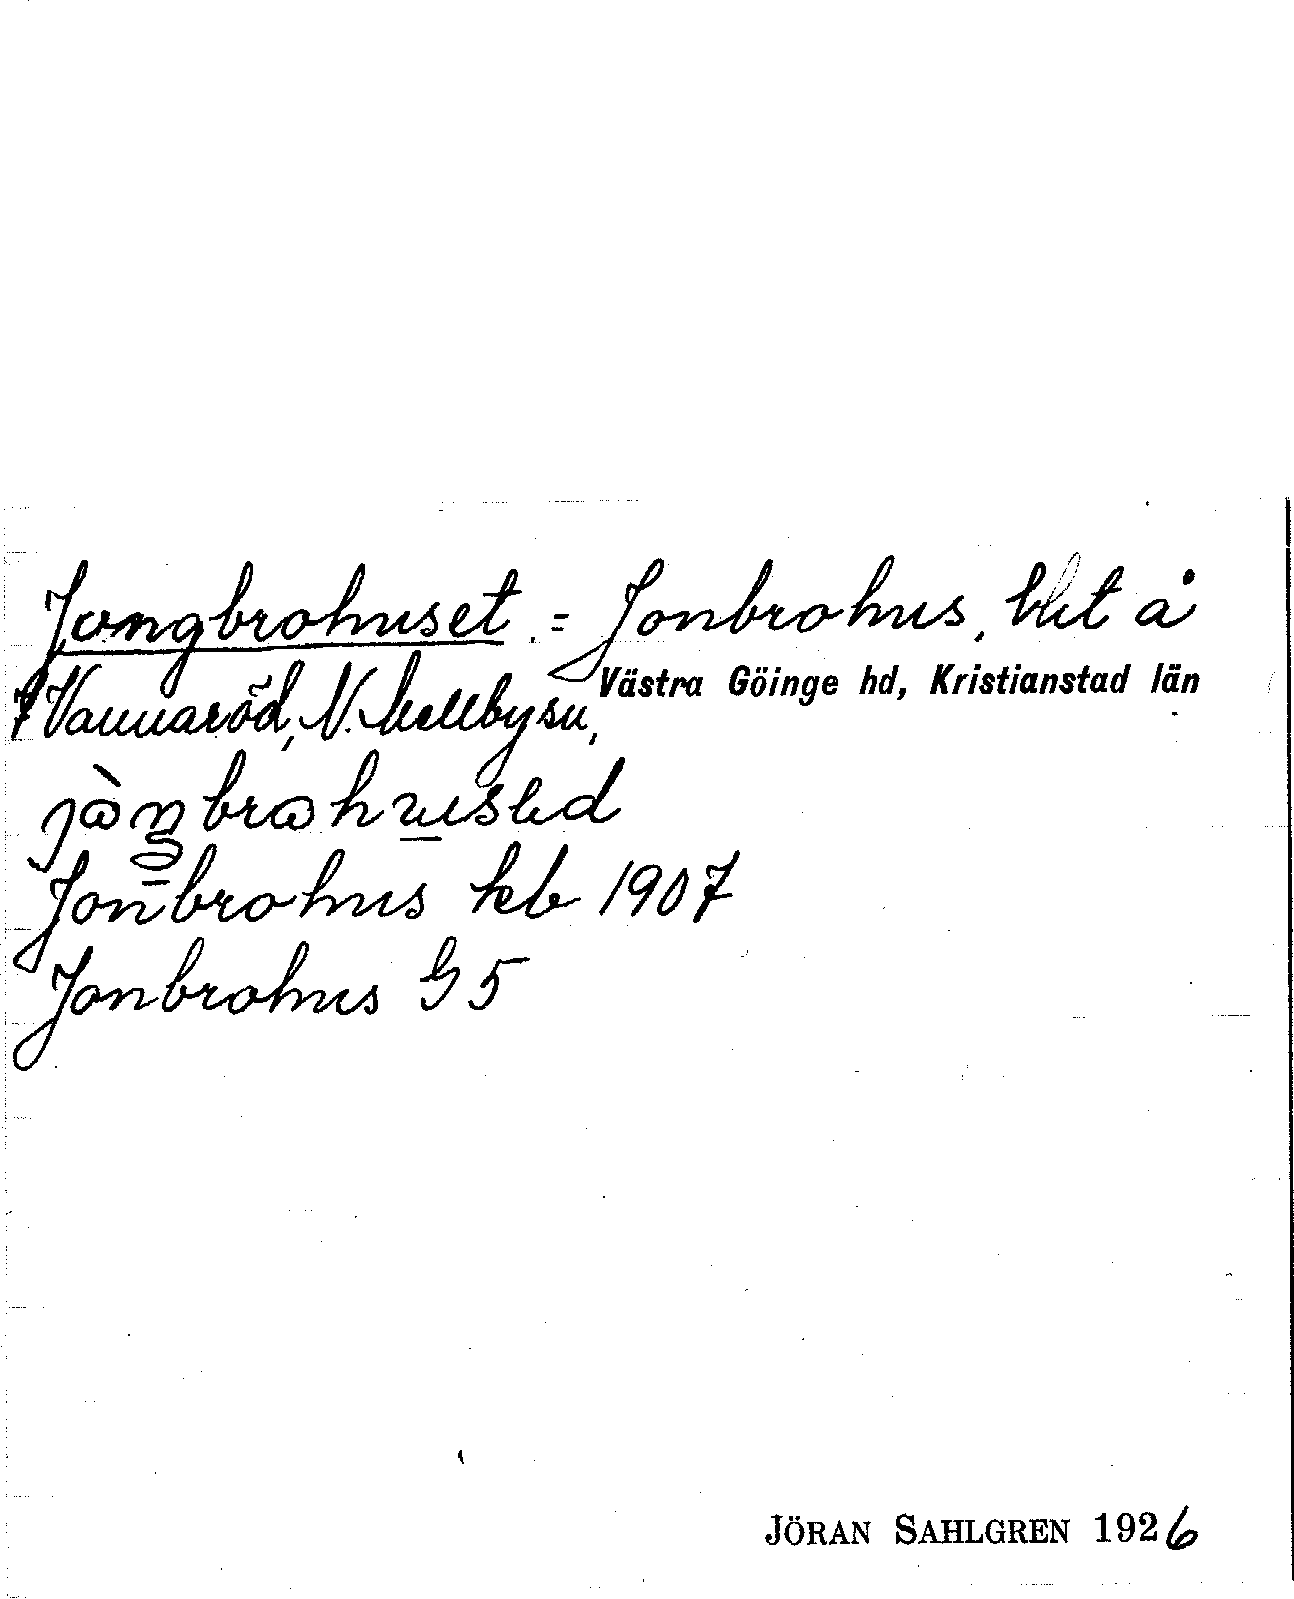 Jongbrohuset. = Jonbrohus, lht å
Vannaröd, N. Mellby sn,
Västra Göinge hd, Kristianstad län
Jonbrohus kb 1907
Jonbrohus G 5
JÖRAN SAHLGREN 1926